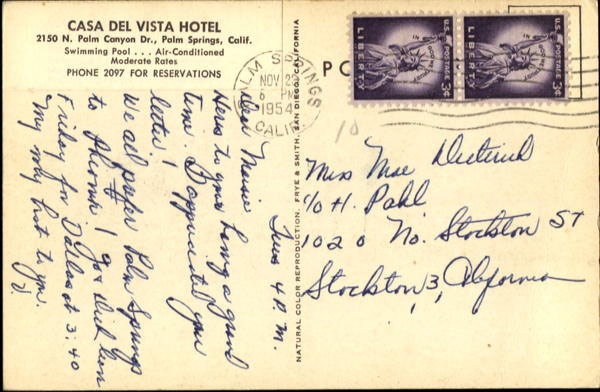 CASA DEL VISTA HOTEL
2150 N. Palm Canyon Dr., Palm Springs, Calif.
Swimming Pool . . . Air-Conditioned
Moderate Rates
PHONE 2097 FOR RESERVATIONS
Tues 4 P.M.
Dear Maxie
Here's to your having a good
time. I appreciated your
letter!
We all prefer Palm Springs
to Phoenix! Joe & Dick leave
Friday for Dallas at 3:40
My very best to you.
J.
NATURAL COLOR REPRODUCTION, FRYE & SMITH, SAN DIEGO, CALIFORNIA
PALM SPRINGS
NOV 23
6 PM
1954
CALIF.
PO
U.S. POSTAGE 3¢
LIBERTY
IN GOD WE TRUST
U.S. POSTAGE 3¢
LIBERTY
IN GOD WE TRUST
10
Miss Mae Dieterich
c/o H. Pahl
1020 No. Stockton St
Stockton 3, California